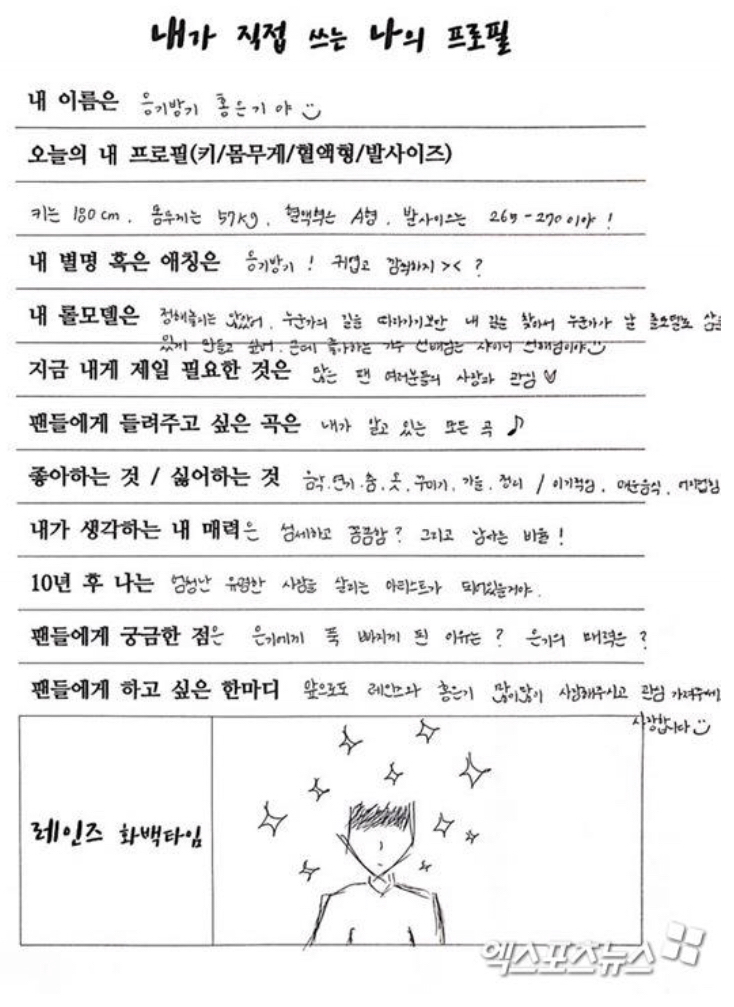 내가 직접 쓰는 나의 프로필
내 이름은 응기방기 홍은기야
오늘의 내 프로필(키/몸무게/혈액형/발사이즈)
키는 180cm, 몸무게는 57kg, 혈액형은 A형, 발사이즈는 265-270이야!
내 별명 혹은 애칭은 응기방기! 귀엽고 깜찍하지 >< ?
내 롤모델은 정해놓지는 않았어, 누군가의 길을 따라가기보단 내 길을 찾아서 누군가가 날 롤모델로 삼을
있게 만들고 싶어. 근데 좋아하는 가수 선배님은 샤이니 선배님이야
지금 내게 제일 필요한 것은 많은 팬 여러분들의 사랑과 관심♥
팬들에게 들려주고 싶은 곡은 내가 알고 있는 모든 곡♪
좋아하는 것 / 싫어하는 것 음악, 연기, 춤, 옷, 꾸미기, 가을, 정리 / 이기적임, 매운음식,
내가 생각하는 내 매력은 섬세하고 꼼꼼함? 그리고 남다른 비율!
10년 후 나는 엄청난 유명한 사람을 살리는 아티스트가 되어있을거야.
팬들에게 궁금한 점은 은기에게 푹 빠지게 된 이유는? 은기의 매력은?
팬들에게 하고 싶은 한마디 앞으로도 레인즈와 홍은기 많이많이 사랑해주시고 관심 가져주세요
사랑합니다
레인즈 화백타임
엑스포츠뉴스